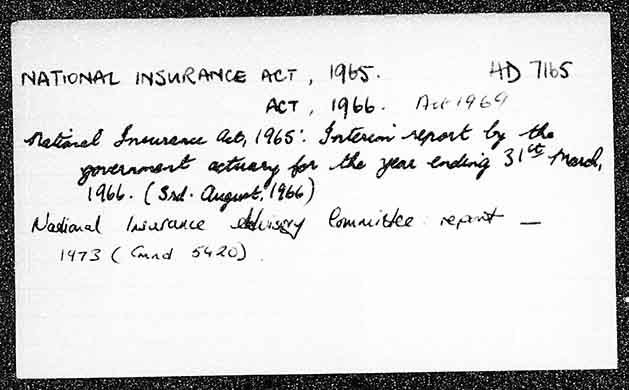 NATIONAL INSURANCE ACT, 1965. HD 7165
ACT, 1966. Act 1969
National Insurance Act, 1965: Interim report by the
government actuary for the year ending 31st March,
1966. (3rd. August, 1966)
National Insurance Advisory Committee report —
1973 (Cmnd 5420).